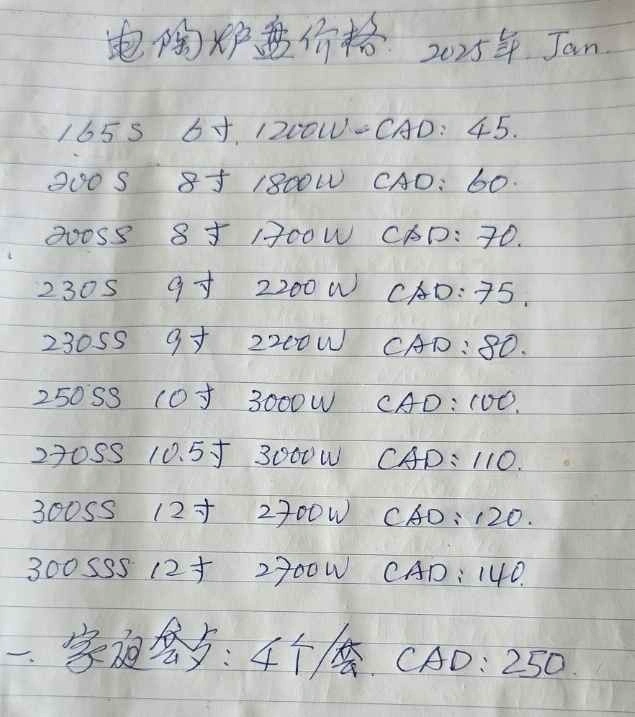 电陶炉盘价格. 2025年 Jan.
165S 6寸. 1200W-CAD: 45.
200S 8寸 1800W CAD: 60.
200SS 8寸 1700W CAD: 70.
230S 9寸 2200W CAD: 75.
230SS 9寸 2200W CAD: 80.
250SS 10寸 3000W CAD: 100.
270SS 10.5寸 3000W CAD: 110.
300SS 12寸 2700W CAD: 120.
300SSS 12寸 2700W CAD: 140.
一. 家庭套: 4个/套. CAD: 250.